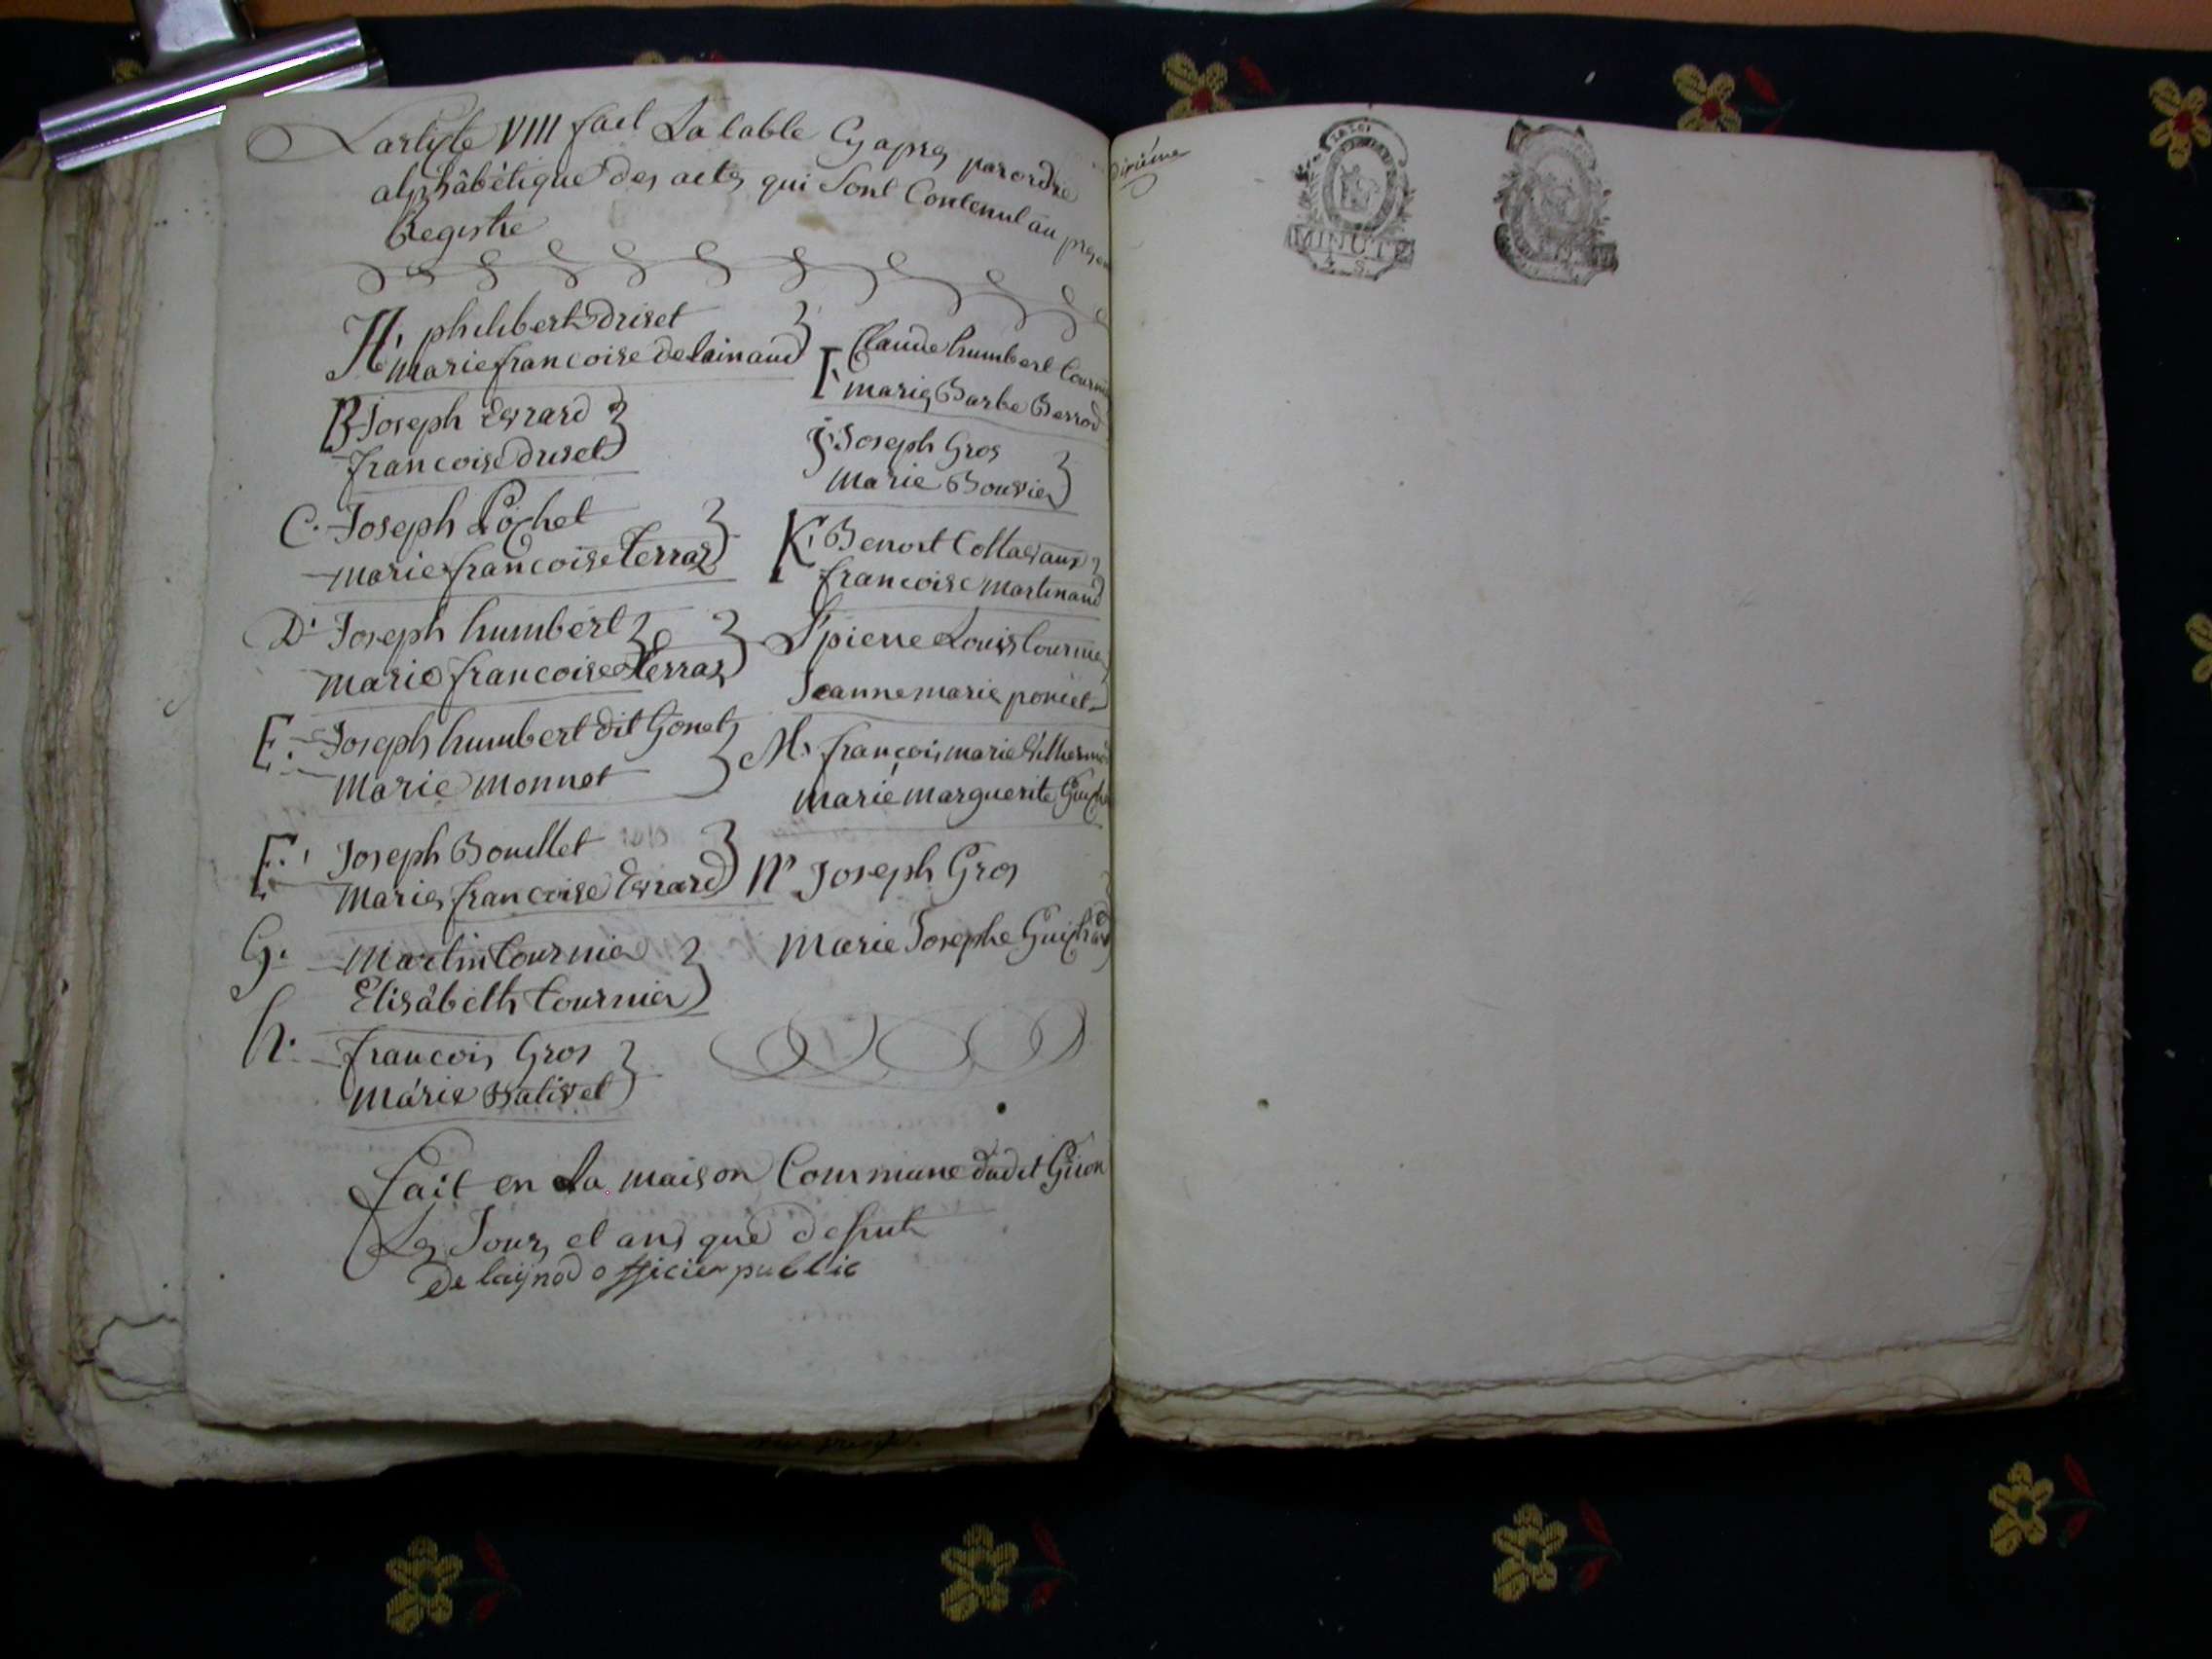 L'article VIII fait La table Cy apres par ordre
alphâbétique des actes qui Sont Contenul au
Registre
A. philibert Driset
marie francoise delainaud
B Joseph Evrard
francoise druset
C. Joseph Pochet
marie francoise terraz
D. Joseph humbert
marie francoise Terraz
E. Joseph humbert dit Gonet
Marie Monnet
F. Joseph Bouillet
Marie francoise Evrard
G. Martin tournier
Elisâbeth tournier
h. francois Gros
Marie Balivet
I. Claude humbert
marie Barbe Berrod
J. Joseph Gros
Marie Bouvier
K. Benoit Collavaux
francoise martinand
L. pierre Louis tournier
Jeanne marie poncet
M. françois marie
marie marguerite
N. Joseph Gros
Marie Josephe Guichard
fait en La maison Commune dudit Giron
Les Jour, et ans que desput
De laynod officier public
dixième
MINUTE